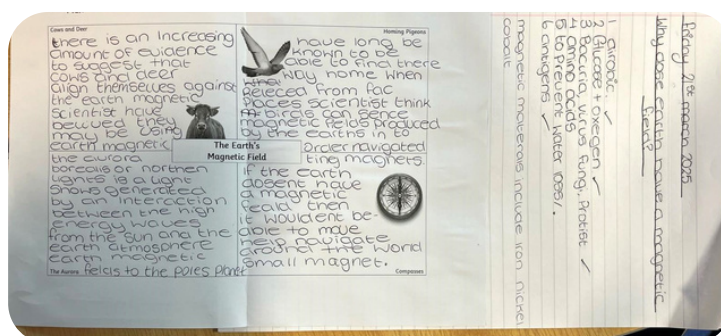 Cows and Deer
there is an Increasing
amount of evidence
to suggest that
cows and deer
align themselves against
the earth magnetic
scientist have
they
may be using
earth magnetic
the aurora
borealis or northen
lights is a light
shows generated
by an interaction
between the high
energy waves
from the sun and the
earth atmosphere
earth magnetic
The Aurora felcis to the poles planet
Homing Pigeons
have long be
known to be
able to find there
way home when
releced from fac
places scientist think
birds can sence
magnetic fields produced
by the earths in to
order navigated
ting magnets.
The Earth's
Magnetic Field
if the earth
dosent have
a magnetic
feald then
it wouldent be-
able to move
help navigate
around the world
small magnet.
Compasses
Friday 21st march 2025
Why dose earth have a magnetic
field?
1 airobic.
2 Glucose + oxegen
3 Bacuria, virus fungi, Protist
4 amino acids
5 to Prevent water loss.
6 antigens
magnetic materals include iron nickel
cobalt